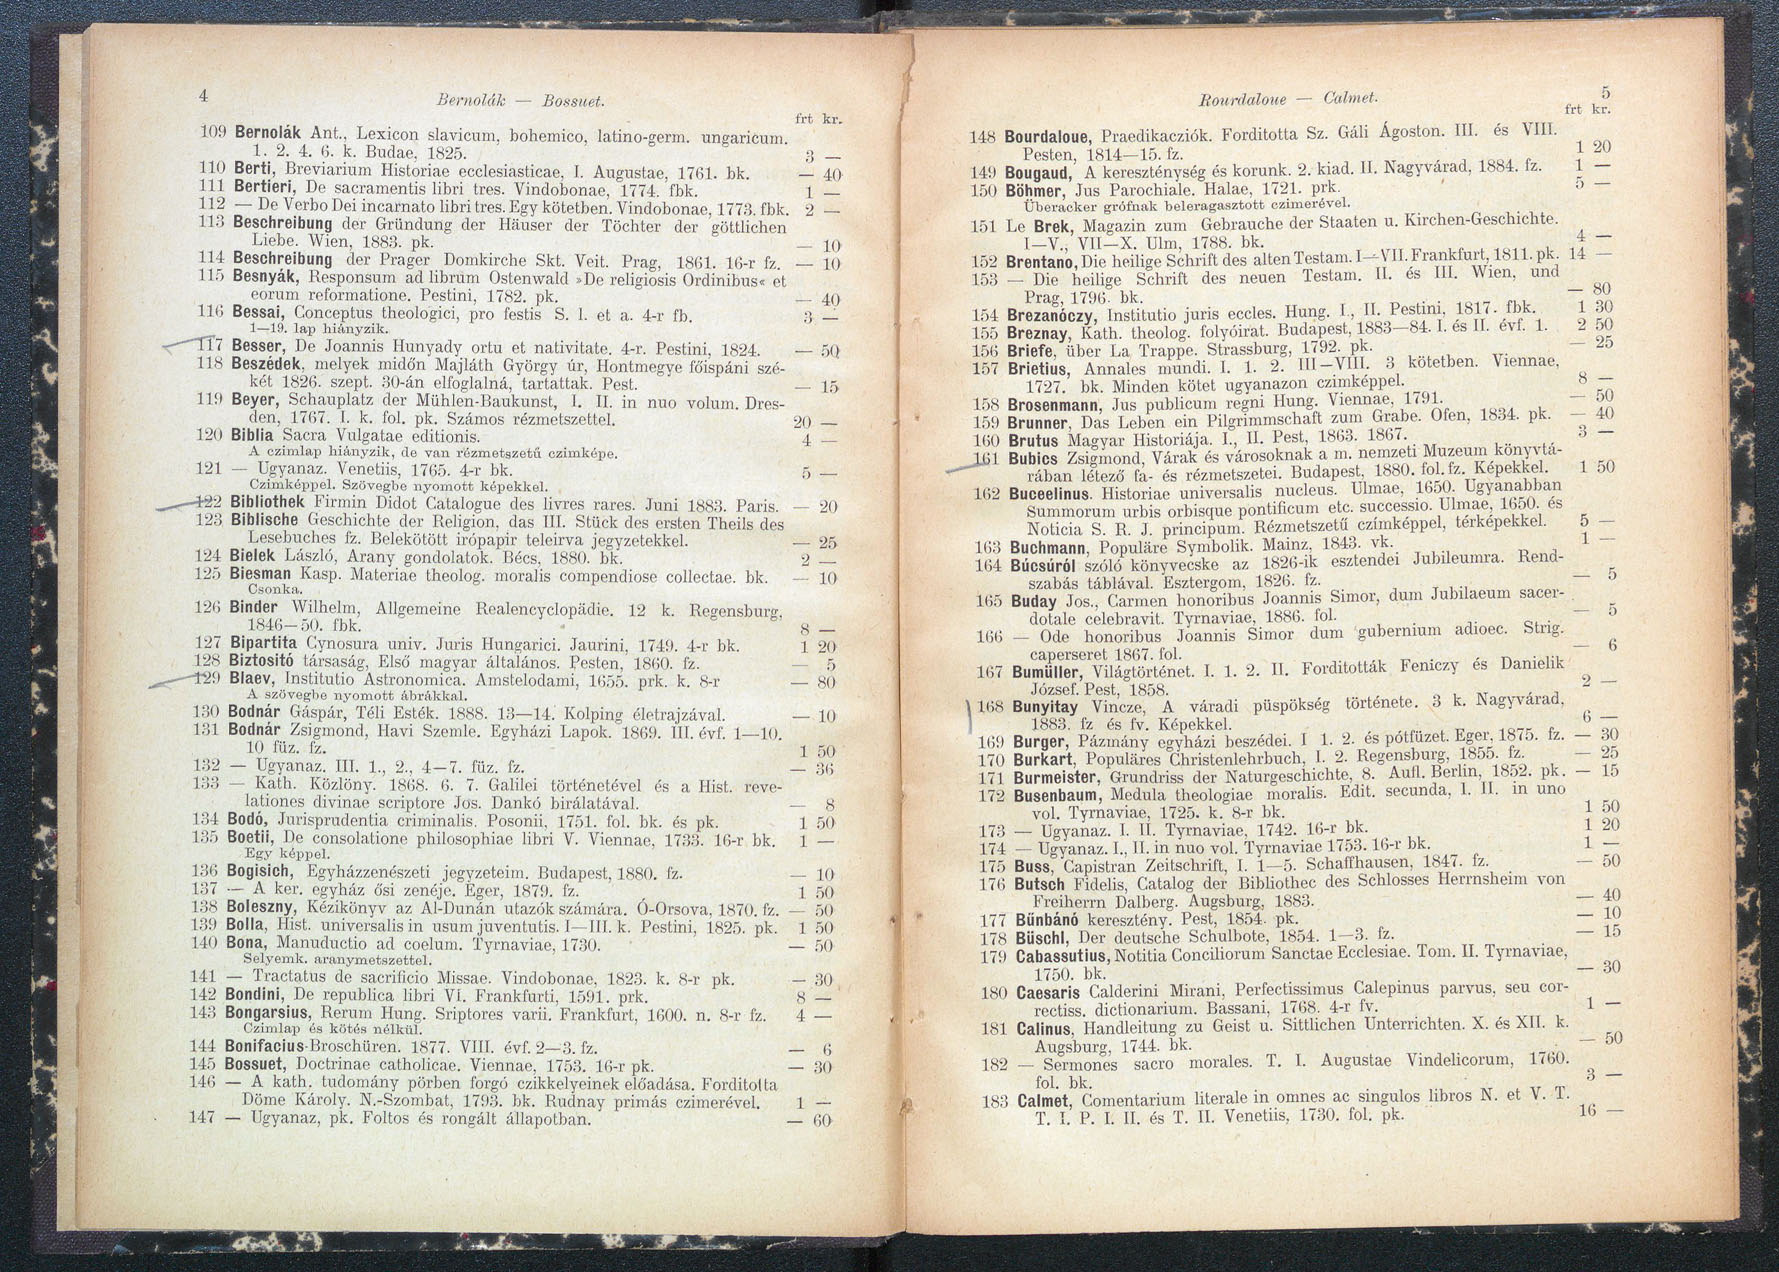 4
Bernolák — Bossuet.
frt kr.
109 Bernolák Ant., Lexicon slavicum, bohemico, latino-germ. ungaricum.
1. 2. 4. 6. k. Budae, 1825. 3 —
110 Berti, Breviarium Historiae ecclesiasticae, I. Augustae, 1761. bk. — 40
111 Bertieri, De sacramentis libri tres. Vindobonae, 1774. fbk. 1 —
112 — De Verbo Dei incarnato libri tres. Egy kötetben. Vindobonae, 1773. fbk. 2 —
113 Beschreibung der Gründung der Häuser der Töchter der göttlichen
Liebe. Wien, 1883. pk. — 10
114 Beschreibung der Prager Domkirche Skt. Veit. Prag, 1861. 16-r fz. — 10
115 Besnyák, Responsum ad librum Ostenwald »De religiosis Ordinibus« et
eorum reformatione. Pestini, 1782. pk. — 40
116 Bessai, Conceptus theologici, pro festis S. l. et a. 4-r fb. 3 —
1—19. lap hiányzik.
117 Besser, De Joannis Hunyady ortu et nativitate. 4-r. Pestini, 1824. — 50
118 Beszédek, melyek midőn Majláth György úr, Hontmegye főispáni szé-
két 1826. szept. 30-án elfoglalná, tartattak. Pest. — 15
119 Beyer, Schauplatz der Mühlen-Baukunst, I. II. in nuo volum. Dres-
den, 1767. I. k. fol. pk. Számos rézmetszettel. 20 —
120 Biblia Sacra Vulgatae editionis. 4 —
A czimlap hiányzik, de van rézmetszetű czimképe.
121 — Ugyanaz. Venetiis, 1765. 4-r bk. 5 —
Czimképpel. Szövegbe nyomott képekkel.
122 Bibliothek Firmin Didot Catalogue des livres rares. Juni 1883. Paris. — 20
123 Biblische Geschichte der Religion, das III. Stück des ersten Theils des
Lesebuches fz. Belekötött irópapir teleirva jegyzetekkel. — 25
124 Bielek László, Arany gondolatok. Bécs, 1880. bk. 2 —
125 Biesman Kasp. Materiae theolog. moralis compendiose collectae. bk. — 10
Csonka.
126 Binder Wilhelm, Allgemeine Realencyclopädie. 12 k. Regensburg,
1846—50. fbk. 8 —
127 Bipartita Cynosura univ. Juris Hungarici. Jaurini, 1749. 4-r bk. 1 20
128 Biztositó társaság, Első magyar általános. Pesten, 1860. fz. — 5
129 Blaev, Institutio Astronomica. Amstelodami, 1655. prk. k. 8-r — 80
A szövegbe nyomott ábrákkal.
130 Bodnár Gáspár, Téli Esték. 1888. 13—14. Kolping életrajzával. — 10
131 Bodnár Zsigmond, Havi Szemle. Egyházi Lapok. 1869. III. évf. 1—10.
10 füz. fz. 1 50
132 — Ugyanaz. III. 1., 2., 4—7. füz. fz. — 36
133 — Kath. Közlöny. 1868. 6. 7. Galilei történetével és a Hist. reve-
lationes divinae scriptore Jos. Dankó birálatával. — 8
134 Bodó, Jurisprudentia criminalis. Posonii, 1751. fol. bk. és pk. 1 50
135 Boetii, De consolatione philosophiae libri V. Viennae, 1733. 16-r bk. 1 —
Egy képpel.
136 Bogisich, Egyházzenészeti jegyzeteim. Budapest, 1880. fz. — 10
137 — A ker. egyház ősi zenéje. Eger, 1879. fz. 1 50
138 Boleszny, Kézikönyv az Al-Dunán utazók számára. Ó-Orsova, 1870. fz. — 50
139 Bolla, Hist. universalis in usum juventutis. I—III. k. Pestini, 1825. pk. 1 50
140 Bona, Manuductio ad coelum. Tyrnaviae, 1730. — 50
Selyemk. aranymetszettel.
141 — Tractatus de sacrificio Missae. Vindobonae, 1823. k. 8-r pk. — 30
142 Bondini, De republica libri VI. Frankfurti, 1591. prk. 8 —
143 Bongarsius, Rerum Hung. Sriptores varii. Frankfurt, 1600. n. 8-r fz. 4 —
Czimlap és kötés nélkül.
144 Bonifacius-Broschüren. 1877. VIII. évf. 2—3. fz. — 6
145 Bossuet, Doctrinae catholicae. Viennae, 1753. 16-r pk. — 30
146 — A kath. tudomány pörben forgó czikkelyeinek előadása. Forditotta
Döme Károly. N.-Szombat, 1793. bk. Rudnay primás czimerével. 1 —
147 — Ugyanaz, pk. Foltos és rongált állapotban. — 60
Bourdaloue — Calmet.
5
frt kr.
148 Bourdaloue, Praedikacziók. Forditotta Sz. Gáli Ágoston. III. és VIII.
Pesten, 1814—15. fz. 1 20
149 Bougaud, A kereszténység és korunk. 2. kiad. II. Nagyvárad, 1884. fz. 1 —
150 Böhmer, Jus Parochiale. Halae, 1721. prk. 5 —
Überacker grófnak beleragasztott czimerével.
151 Le Brek, Magazin zum Gebrauche der Staaten u. Kirchen-Geschichte.
I—V., VII—X. Ulm, 1788. bk. 4 —
152 Brentano, Die heilige Schrift des alten Testam. I—VII. Frankfurt, 1811. pk. 14 —
153 — Die heilige Schrift des neuen Testam. II. és III. Wien, und
Prag, 1796. bk. — 80
154 Brezanóczy, Institutio juris eccles. Hung. I., II. Pestini, 1817. fbk. 1 30
155 Breznay, Kath. theolog. folyóirat. Budapest, 1883—84. I. és II. évf. 1. 2 50
156 Briefe, über La Trappe. Strassburg, 1792. pk. — 25
157 Brietius, Annales mundi. I. 1. 2. III—VIII. 3 kötetben. Viennae,
1727. bk. Minden kötet ugyanazon czimképpel. 8 —
158 Brosenmann, Jus publicum regni Hung. Viennae, 1791. — 50
159 Brunner, Das Leben ein Pilgrimmschaft zum Grabe. Ofen, 1834. pk. — 40
160 Brutus Magyar Historiája. I., II. Pest, 1863. 1867. 3 —
161 Bubics Zsigmond, Várak és városoknak a m. nemzeti Muzeum könyvtá-
rában létező fa- és rézmetszetei. Budapest, 1880. fol. fz. Képekkel. 1 50
162 Buceelinus. Historiae universalis nucleus. Ulmae, 1650. Ugyanabban
Summorum urbis orbisque pontificum etc. successio. Ulmae, 1650. és
Noticia S. R. J. principum. Rézmetszetű czímképpel, térképekkel. 5 —
163 Buchmann, Populäre Symbolik. Mainz, 1843. vk. 1 —
164 Búcsúról szóló könyvecske az 1826-ik esztendei Jubileumra. Rend-
szabás táblával. Esztergom, 1826. fz. — 5
165 Buday Jos., Carmen honoribus Joannis Simor, dum Jubilaeum sacer-
dotale celebravit. Tyrnaviae, 1886. fol. — 5
166 — Ode honoribus Joannis Simor dum gubernium adioec. Strig.
caperseret 1867. fol. — 6
167 Bumüller, Világtörténet. I. 1. 2. II. Forditották Feniczy és Danielik
József. Pest, 1858. 2 —
168 Bunyitay Vincze, A váradi püspökség története. 3 k. Nagyvárad,
1883. fz és fv. Képekkel. 6 —
169 Burger, Pázmány egyházi beszédei. I 1. 2. és pótfüzet. Eger, 1875. fz. — 30
170 Burkart, Populäres Christenlehrbuch, I. 2. Regensburg, 1855. fz. — 25
171 Burmeister, Grundriss der Naturgeschichte, 8. Aufl. Berlin, 1852. pk. — 15
172 Busenbaum, Medula theologiae moralis. Edit. secunda, I. II. in uno
vol. Tyrnaviae, 1725. k. 8-r bk. 1 50
173 — Ugyanaz. I. II. Tyrnaviae, 1742. 16-r bk. 1 20
174 — Ugyanaz. I., II. in nuo vol. Tyrnaviae 1753. 16-r bk. 1 —
175 Buss, Capistran Zeitschrift, I. 1—5. Schaffhausen, 1847. fz. — 50
176 Butsch Fidelis, Catalog der Bibliothec des Schlosses Herrnsheim von
Freiherrn Dalberg. Augsburg, 1883. — 40
177 Bűnbánó keresztény. Pest, 1854. pk. — 10
178 Büschl, Der deutsche Schulbote, 1854. 1—3. fz. — 15
179 Cabassutius, Notitia Conciliorum Sanctae Ecclesiae. Tom. II. Tyrnaviae,
1750. bk. — 30
180 Caesaris Calderini Mirani, Perfectissimus Calepinus parvus, seu cor-
rectiss. dictionarium. Bassani, 1768. 4-r fv. 1 —
181 Calinus, Handleitung zu Geist u. Sittlichen Unterrichten. X. és XII. k.
Augsburg, 1744. bk. — 50
182 — Sermones sacro morales. T. I. Augustae Vindelicorum, 1760.
fol. bk. 3 —
183 Calmet, Comentarium literale in omnes ac singulos libros N. et V. T.
T. I. P. I. II. és T. II. Venetiis, 1730. fol. pk. 16 —